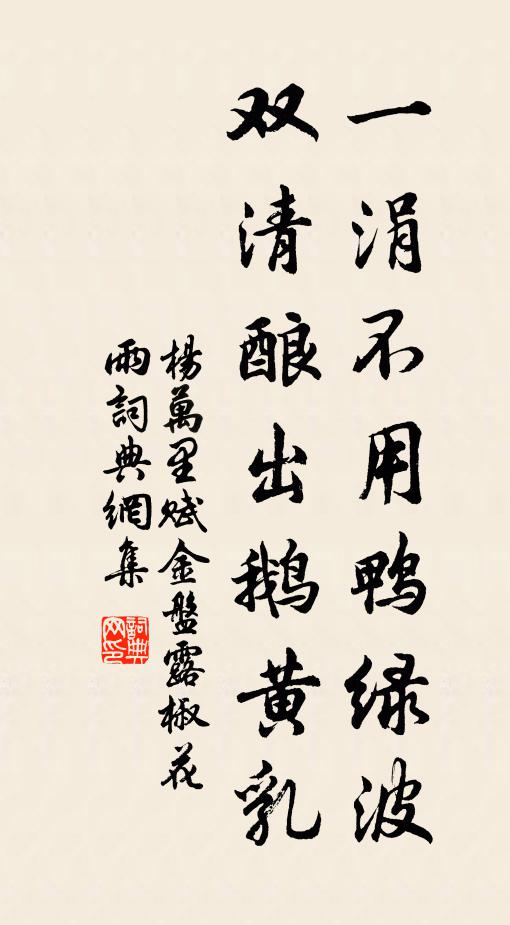 一涓不用鸭绿波
双清酿出鹅黄乳
楊萬里賦金盤露椒花
雨詞典網集
詞典
网印